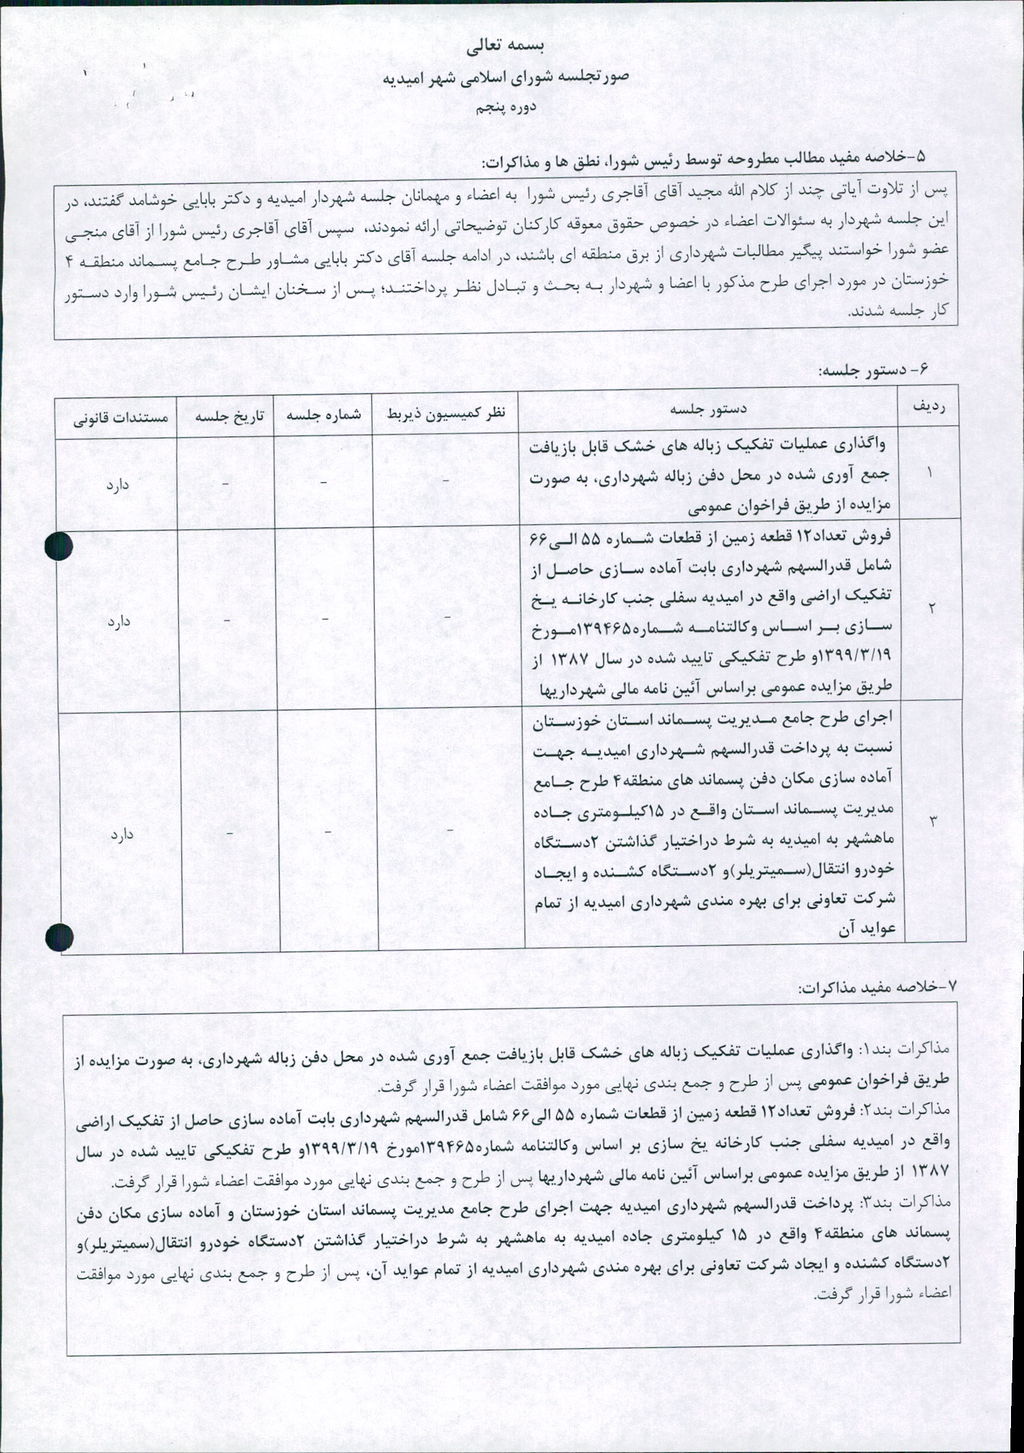 بسمه تعالی
صورتجلسه شورای اسلامی شهر امیدیه
دوره پنجم
۵-خلاصه مفید مطالب مطروحه توسط رئیس شورا، نطق ها و مذاکرات:
پس از تلاوت آیاتی چند از کلام الله مجید آقای آقاجری رئیس شورا به اعضاء و مهمانان جلسه شهردار امیدیه و دکتر بابایی خوشامد گفتند، در
این جلسه شهردار به سئوالات اعضاء در خصوص حقوق معوقه کارکنان توضیحاتی ارائه نمودند، سپس آقای آقاجری رئیس شورا از آقای منجی
عضو شورا خواستند پیگیر مطالبات شهرداری از برق منطقه ای باشند، در ادامه جلسه آقای دکتر بابایی مشاور طرح جامع پسماند منطقه ۴
خوزستان در مورد اجرای طرح مذکور با اعضا و شهردار به بحث و تبادل نظر پرداختند؛ پس از سخنان ایشان رئیس شورا وارد دستور
کار جلسه شدند.
۶- دستور جلسه:
ردیف دستور جلسه نظر کمیسیون ذیربط شماره جلسه تاریخ جلسه مستندات قانونی
واگذاری عملیات تفکیک زباله های خشک قابل بازیافت
۱ جمع آوری شده در محل دفن زباله شهرداری، به صورت - - - دارد
مزایده از طریق فراخوان عمومی
فروش تعداد۱۲ قطعه زمین از قطعات شماره ۵۵ الی۶۶
شامل قدرالسهم شهرداری بابت آماده سازی حاصل از
تفکیک اراضی واقع در امیدیه سفلی جنب کارخانه یخ
۲ سازی بر اساس وکالتنامه شماره۱۳۹۴۶۵مورخ - - - دارد
۱۳۹۹/۳/۱۹و طرح تفکیکی تایید شده در سال ۱۳۸۷ از
طریق مزایده عمومی براساس آئین نامه مالی شهرداریها
اجرای طرح جامع مدیریت پسماند استان خوزستان
نسبت به پرداخت قدرالسهم شهرداری امیدیه جهت
آماده سازی مکان دفن پسماند های منطقه۴ طرح جامع
مدیریت پسماند استان واقع در ۱۵کیلومتری جاده
۳ ماهشهر به امیدیه به شرط دراختیار گذاشتن ۲دستگاه - - - دارد
خودرو انتقال(سمیتریلر)و ۲دستگاه کشنده و ایجاد
شرکت تعاونی برای بهره مندی شهرداری امیدیه از تمام
عواید آن
۷-خلاصه مفید مذاکرات:
مذاکرات بند۱: واگذاری عملیات تفکیک زباله های خشک قابل بازیافت جمع آوری شده در محل دفن زباله شهرداری، به صورت مزایده از
طریق فراخوان عمومی پس از طرح و جمع بندی نهایی مورد موافقت اعضاء شورا قرار گرفت.
مذاکرات بند۲: فروش تعداد۱۲ قطعه زمین از قطعات شماره ۵۵ الی۶۶ شامل قدرالسهم شهرداری بابت آماده سازی حاصل از تفکیک اراضی
واقع در امیدیه سفلی جنب کارخانه یخ سازی بر اساس وکالتنامه شماره۱۳۹۴۶۵مورخ ۱۳۹۹/۳/۱۹و طرح تفکیکی تایید شده در سال
۱۳۸۷ از طریق مزایده عمومی براساس آئین نامه مالی شهرداریها پس از طرح و جمع بندی نهایی مورد موافقت اعضاء شورا قرار گرفت.
مذاکرات بند۳: پرداخت قدرالسهم شهرداری امیدیه جهت اجرای طرح جامع مدیریت پسماند استان خوزستان و آماده سازی مکان دفن
پسماند های منطقه۴ واقع در ۱۵ کیلومتری جاده امیدیه به ماهشهر به شرط دراختیار گذاشتن ۲دستگاه خودرو انتقال(سمیتریلر)و
۲دستگاه کشنده و ایجاد شرکت تعاونی برای بهره مندی شهرداری امیدیه از تمام عواید آن، پس از طرح و جمع بندی نهایی مورد موافقت
اعضاء شورا قرار گرفت.